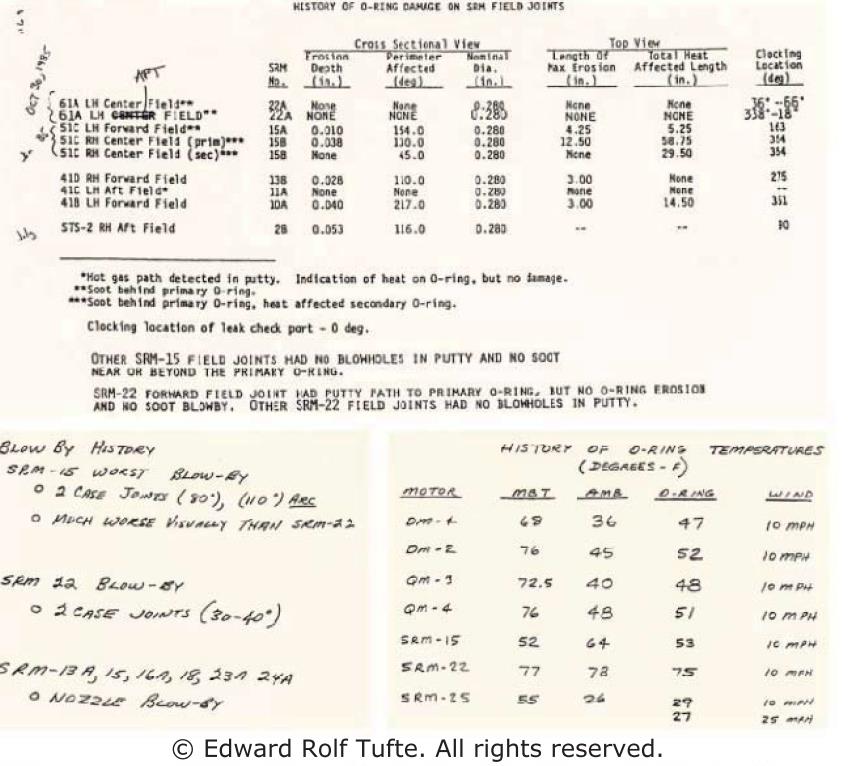 HISTORY OF O-RING DAMAGE ON SRM FIELD JOINTS
Cross Sectional View Top View
SRM No. Erosion Depth (in.) Perimeter Affected (deg) Nominal Dia. (in.) Length Of Max Erosion (in.) Total Heat Affected Length (in.) Clocking Location (deg)
OCT 30, 1985
APT
61A LH Center Field** 22A None None 0.280 None None 36°--66°
61A LH CENTER FIELD** 22A NONE NONE 0.280 NONE NONE 338°-18°
51C LH Forward Field** 15A 0.010 154.0 0.280 4.25 5.25 163
51C RH Center Field (prim)*** 15B 0.038 130.0 0.280 12.50 58.75 354
51C RH Center Field (sec)*** 15B None 45.0 0.280 None 29.50 354
41D RH Forward Field 13B 0.028 110.0 0.280 3.00 None 275
41C LH Aft Field* 11A None None 0.280 None None --
41B LH Forward Field 10A 0.040 217.0 0.280 3.00 14.50 351
July
STS-2 RH Aft Field 2B 0.053 116.0 0.280 -- -- 90
*Hot gas path detected in putty. Indication of heat on O-ring, but no damage.
**Soot behind primary O-ring.
***Soot behind primary O-ring, heat affected secondary O-ring.
Clocking location of leak check port - 0 deg.
OTHER SRM-15 FIELD JOINTS HAD NO BLOWHOLES IN PUTTY AND NO SOOT
NEAR OR BEYOND THE PRIMARY O-RING.
SRM-22 FORWARD FIELD JOINT HAD PUTTY PATH TO PRIMARY O-RING, BUT NO O-RING EROSION
AND NO SOOT BLOWBY. OTHER SRM-22 FIELD JOINTS HAD NO BLOWHOLES IN PUTTY.
BLOW BY HISTORY
SRM-15 WORST BLOW-BY
O 2 CASE JOINTS (80°), (110°) ARC
O MUCH WORSE VISUALLY THAN SRM-22
SRM 22 BLOW-BY
O 2 CASE JOINTS (30-40°)
SRM-13A, 15, 16A, 18, 23A 24A
O NOZZLE BLOW-BY
HISTORY OF O-RING TEMPERATURES
(DEGREES-F)
MOTOR MBT AMB O-RING WIND
DM-4 68 36 47 10 MPH
DM-2 76 45 52 10 MPH
QM-3 72.5 40 48 10 MPH
QM-4 76 48 51 10 MPH
SRM-15 52 64 53 10 MPH
SRM-22 77 78 75 10 MPH
SRM-25 55 26 29 10 MPH
27 25 MPH
© Edward Rolf Tufte. All rights reserved.